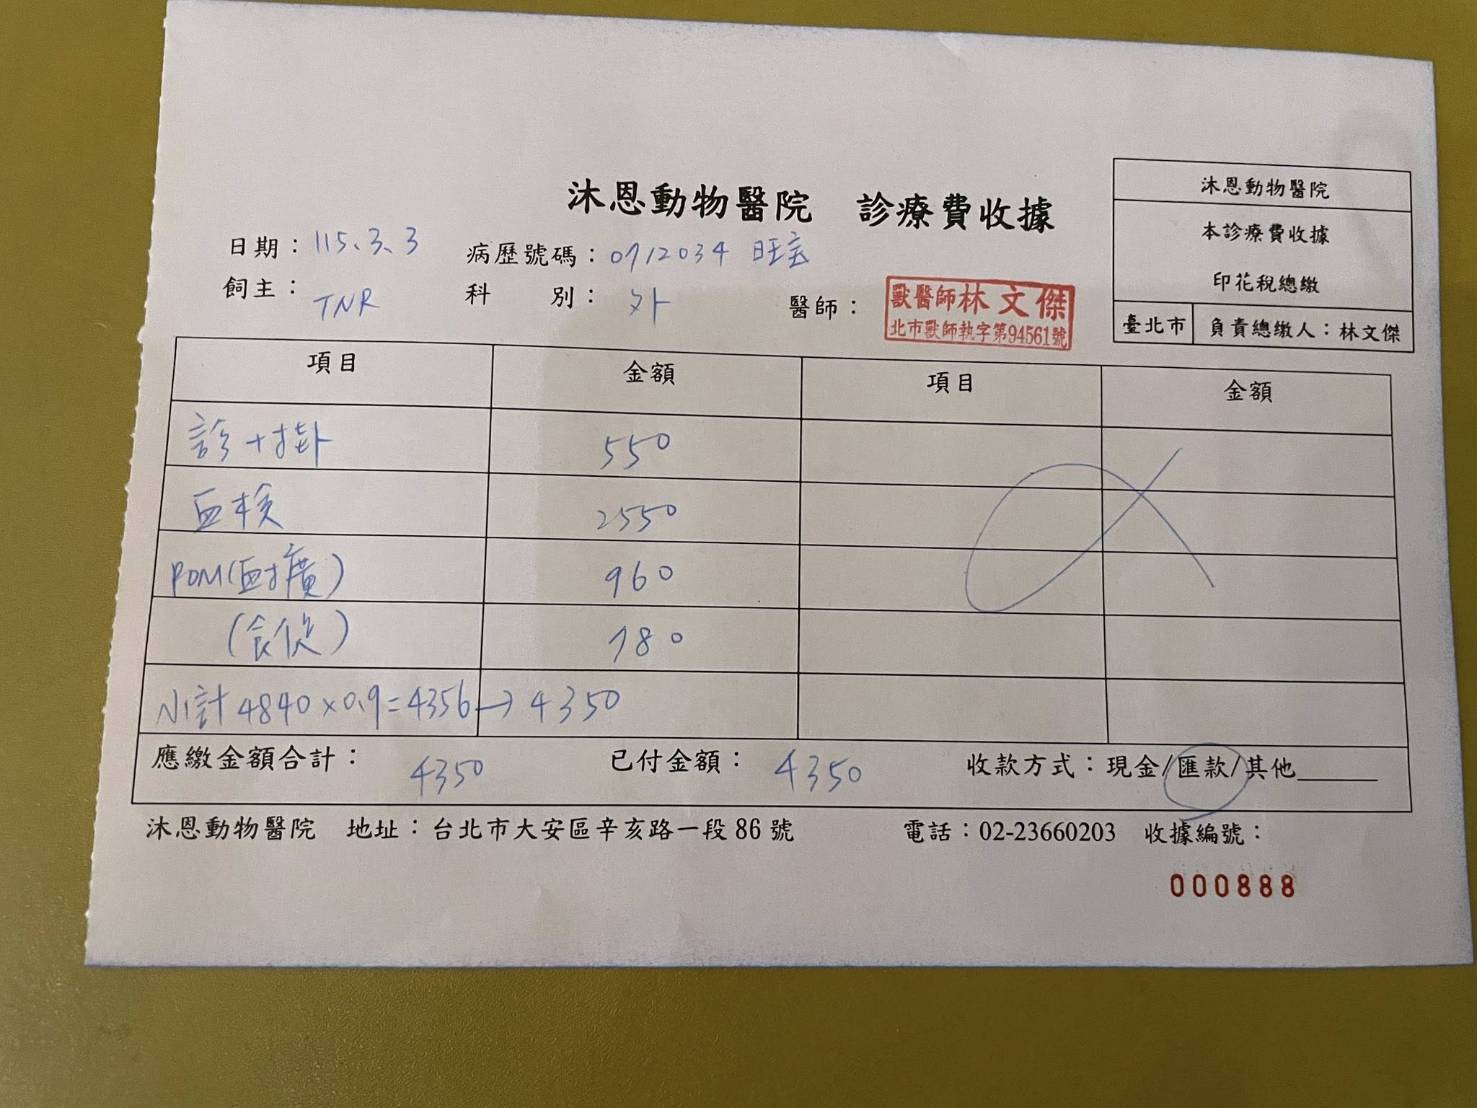 沐恩動物醫院 診療費收據
沐恩動物醫院
本診療費收據
印花稅總繳
臺北市 負責總繳人：林文傑
日期：115.3.3 病歷號碼：0712034 旺宏
飼主：TNR 科 別：外 醫師：
獸醫師林文傑
北市獸師執字第94561號
項目 金額 項目 金額
診+掛 550
血檢 2550
PDM(血擴) 960
780
小計 4840×0.9=4356→4350
應繳金額合計：4350 已付金額：4350 收款方式：現金/匯款/其他______
沐恩動物醫院 地址：台北市大安區辛亥路一段86號 電話：02-23660203 收據編號：
000888